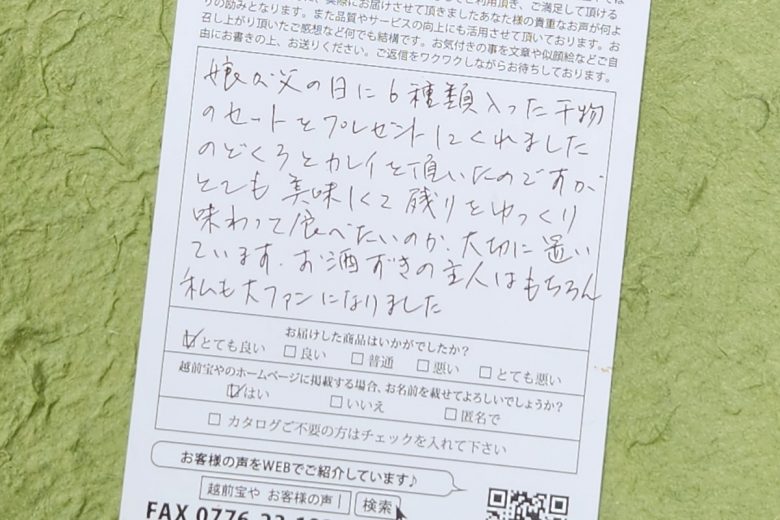 に、実際にお届けさせて頂きましたあなた様の貴重なお声が何よ
りの励みとなります。また品質やサービスの向上にも活用させて頂いております。お
召し上がり頂いたご感想など何でも結構です。お気付きの事を文章や似顔絵などご自
由にお書きの上、お送りください。ご返信をワクワクしながらお待ちしております。
娘が父の日に6種類入った干物
のセットをプレゼントしてくれました
のどくろとカレイを頂いたのですが
とても美味しくて残りをゆっくり
味わって食べたいのか、大切に置い
ています。お酒ずきの主人はもちろん
私も大ファンになりました
お届けした商品はいかがでしたか?
☑とても良い □良い □普通 □悪い □とても悪い
越前宝やのホームページに掲載する場合、お名前を載せてよろしいでしょうか?
☑はい □いいえ □匿名で
□ カタログご不要の方はチェックを入れて下さい
お客様の声をWEBでご紹介しています♪
越前宝や お客様の声 検索
FAX 0776-